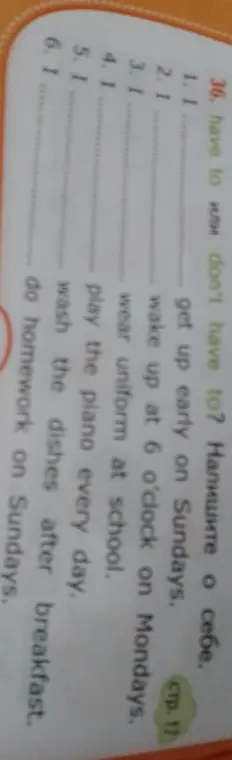 36. have to или don't have to? Напишите о себе.
стр. 17
1. I ............ get up early on Sundays.
2. I ............ wake up at 6 o'clock on Mondays.
3. I ............ wear uniform at school.
4. I ............ play the piano every day.
5. I ............ wash the dishes after breakfast.
6. I ............ do homework on Sundays.